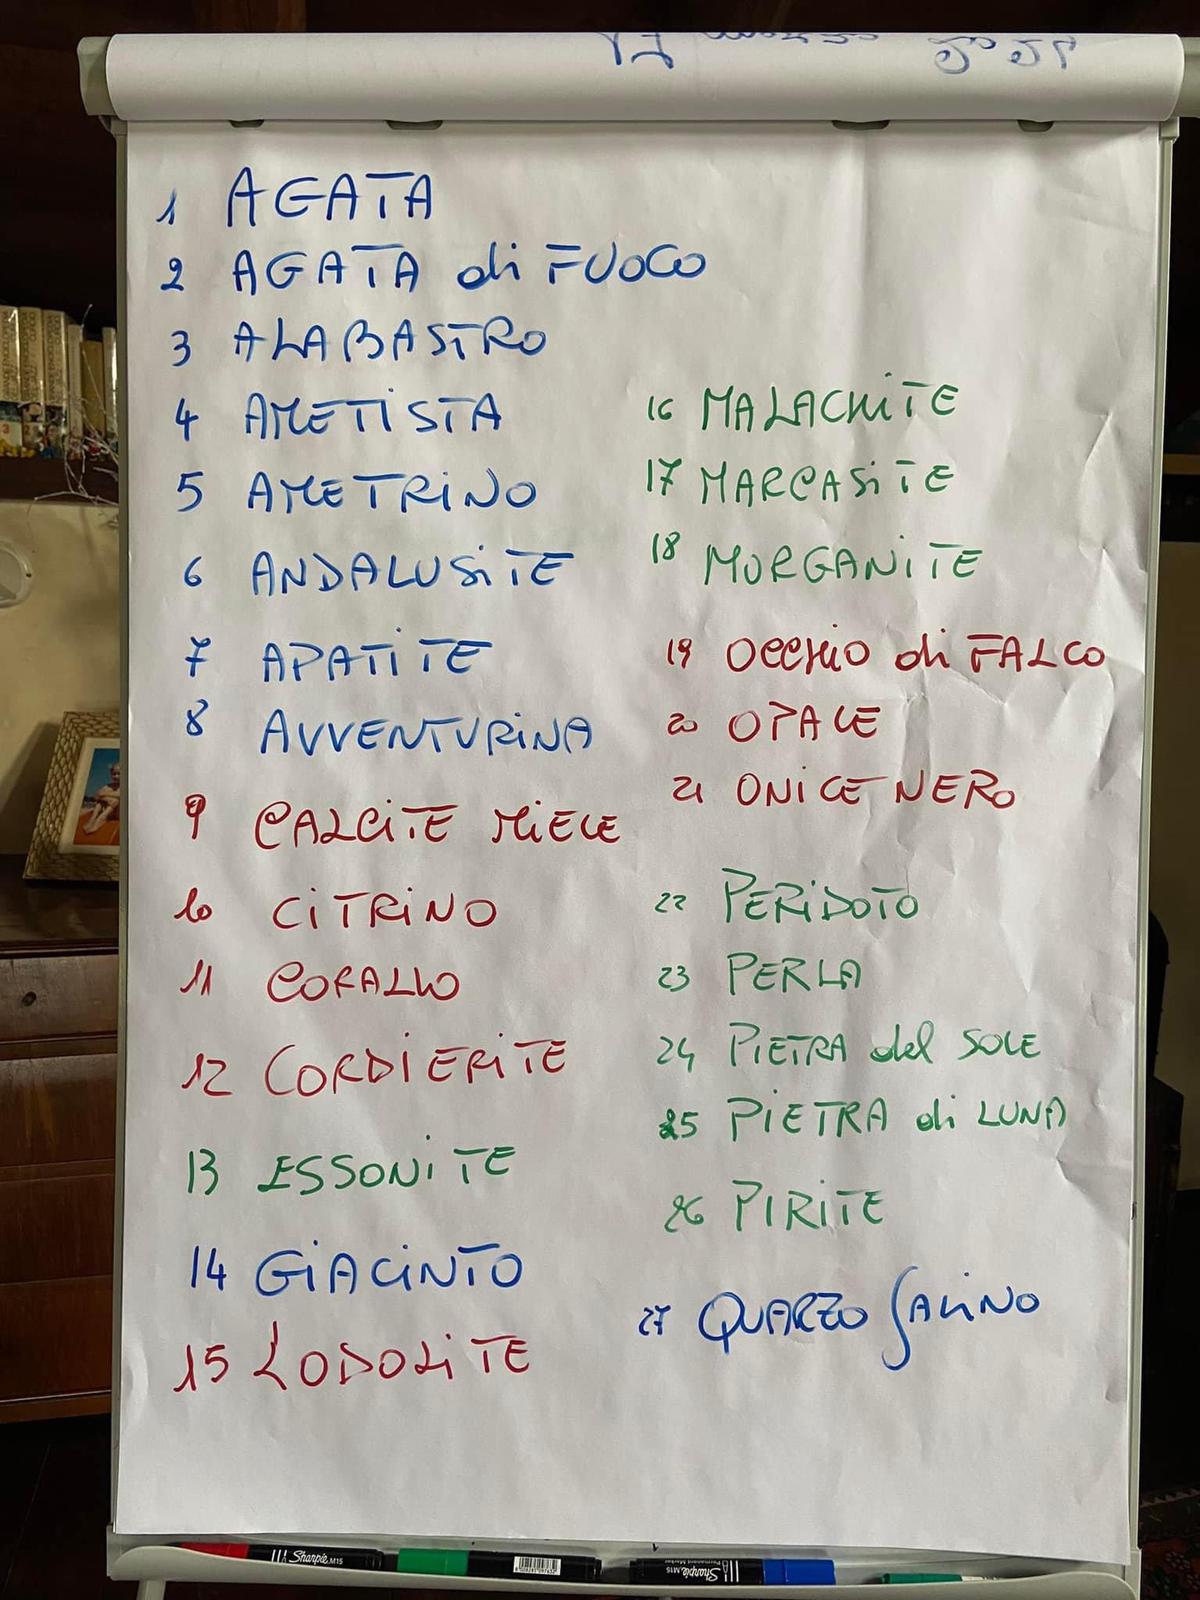 1 AGATA
2 AGATA di FUOCO
3 ALABASTRO
4 AMETISTA
5 AMETRINO
6 ANDALUSITE
7 APATITE
8 AVVENTURINA
9 CALCITE MIELE
10 CITRINO
11 CORALLO
12 CORDIERITE
13 ESSONITE
14 GIACINTO
15 LODOLITE
16 MALACHITE
17 MARCASITE
18 MORGANITE
19 OCCHIO di FALCO
20 OPALE
21 ONICE NERO
22 PERIDOTO
23 PERLA
24 PIETRA del SOLE
25 PIETRA di LUNA
26 PIRITE
27 QUARZO SALINO
Sharpie M15
Sharpie M15
Permanent Marker